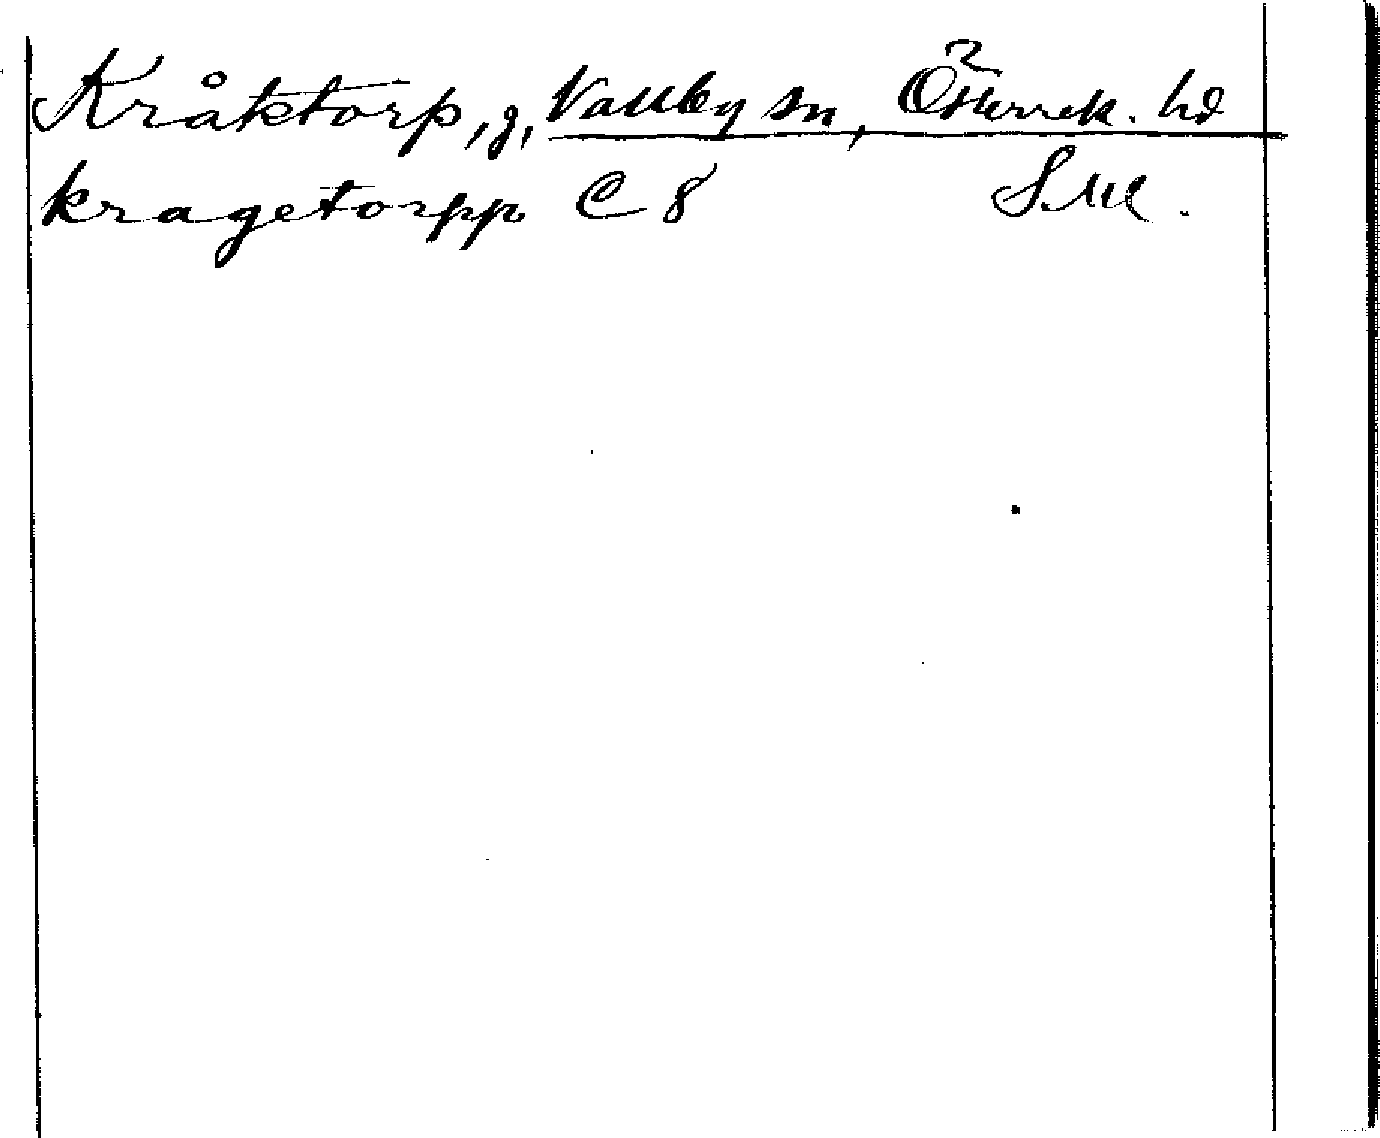 Kråktorp, g, Vallby sn, Österrek. hd
kragetorpp C 8 Sml.